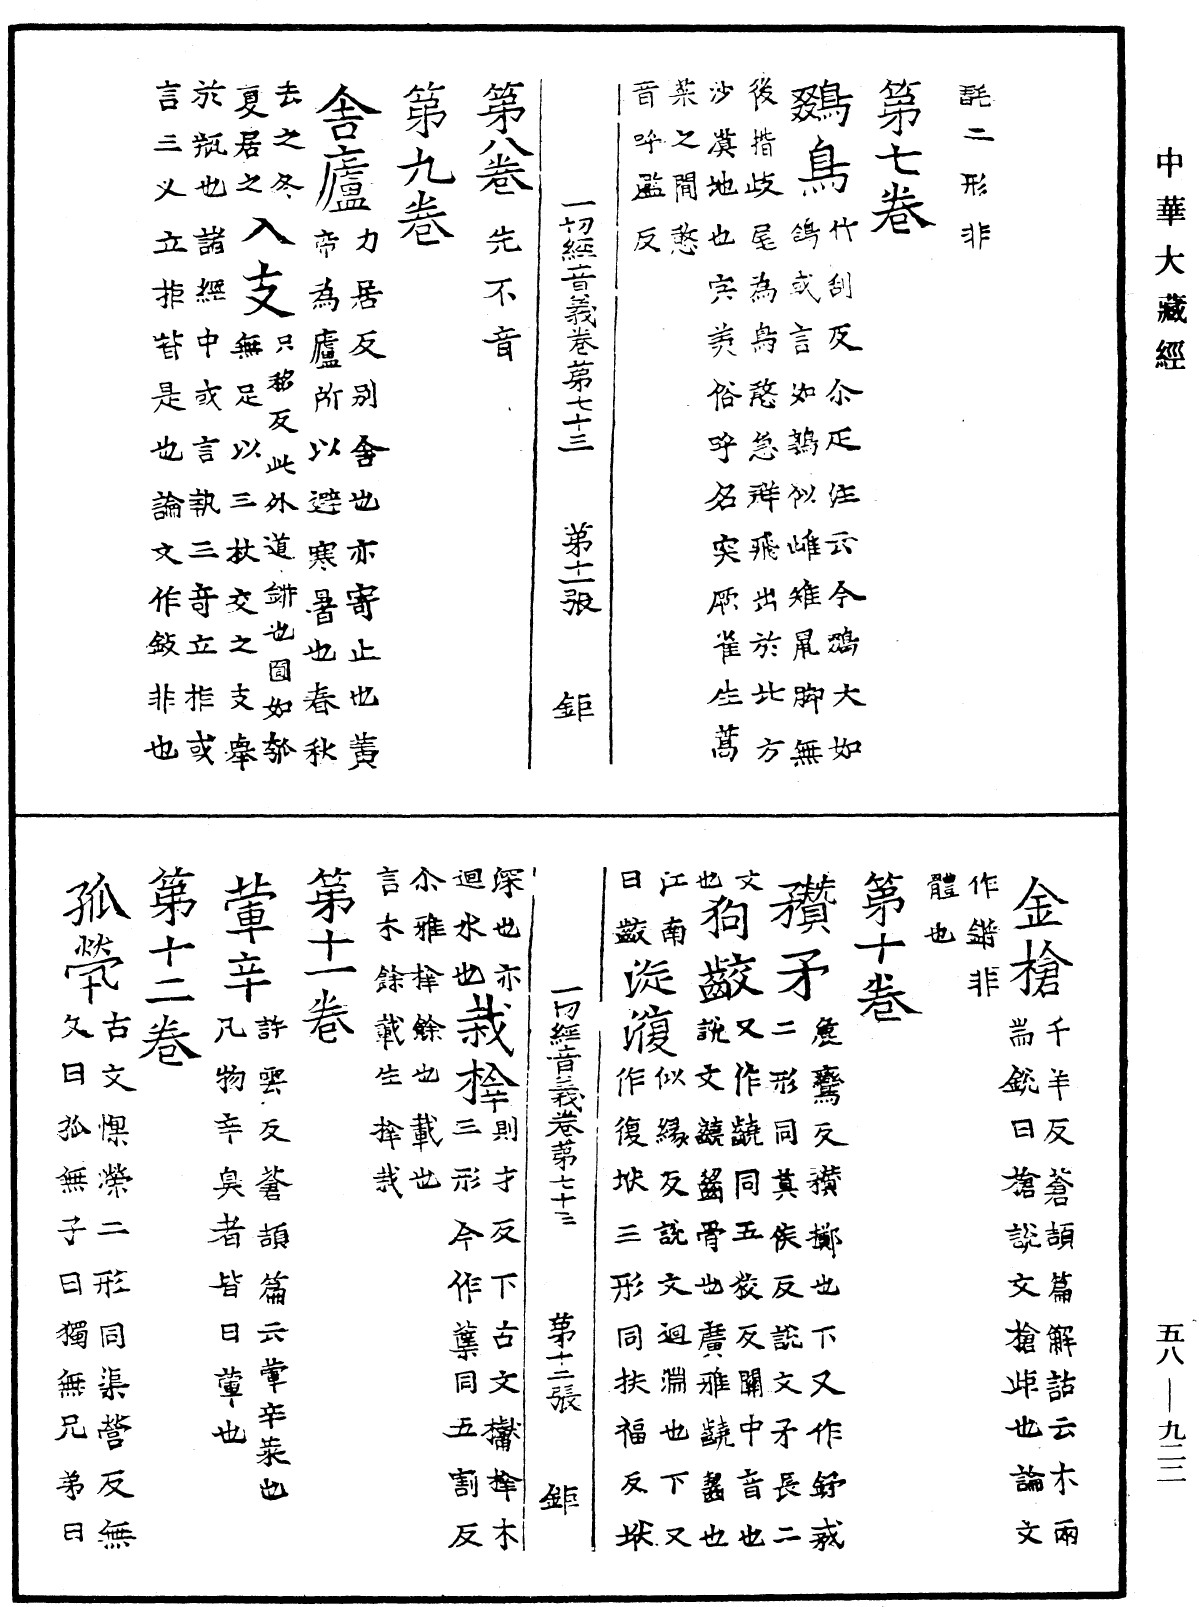 中華大藏經
託二形非
第七卷
鵽鳥
竹刮反尒疋注云今鵽大如
鴿或言如鶉似雌雉鼠脚無
後指歧尾為鳥憨急群飛出於北方
沙漠地也宍美俗呼名突厥雀生蒿
萊之間憨
音呼濫反
一切經音義卷第七十三　第十一張　鉅
第八卷
先不音
第九卷
舍廬
力居反別舍也亦寄止也黃
帝為廬所以避寒暑也春秋
去之冬
夏居之
入支
只移反此外道
瓶也圓如瓠
無足以三杖交之支舉
於瓶也諸經中或言執三奇立拒或
言三叉立拒皆是也論文作䥓非也
金槍
千羊反蒼頡篇解詁云木兩
耑銳曰槍說文槍歫也論文
作鏘非
體也
第十卷
穳矛
麁鸞反穳擲也下又作鉾𢦧
二形同莫侯反說文矛長二
文
也
狗齩
又作齩同五狡反關中音也
說文齩齧骨也廣雅齩齧也
江南
曰齩
淀澓
似緣反說文迴淵也下又
作復垘三形同扶福反垘
深也亦
迴水也
栽枿
則才反下古文㰉枿木
三形今作蘖同五割反
尒雅枿餘也載也
言木餘載生枿栽
一切經音義卷第七十三　第十二張　鉅
第十一卷
葷辛
許雲反蒼頡篇云葷辛菜也
凡物辛臭者皆曰葷也
第十二卷
孤煢
古文惸㷀二形同渠營反無
父曰孤無子曰獨無兄弟曰
五八—九二二